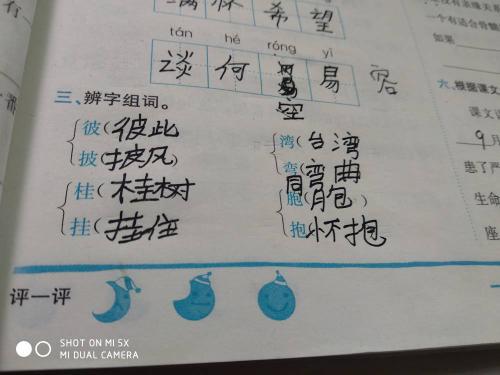 满 怀 希 望
tán hé róng yì
谈 何 易 容
三、辨字组词。
彼(彼此 湾(台湾
披(披风) 弯(弯曲
桂(桂树 胞(同胞)
挂(挂住 抱(怀抱
评一评
有一
一个有适合骨髓
如果
六、根据课文
课文
9月
患了严
生命
座
SHOT ON MI 5X
MI DUAL CAMERA